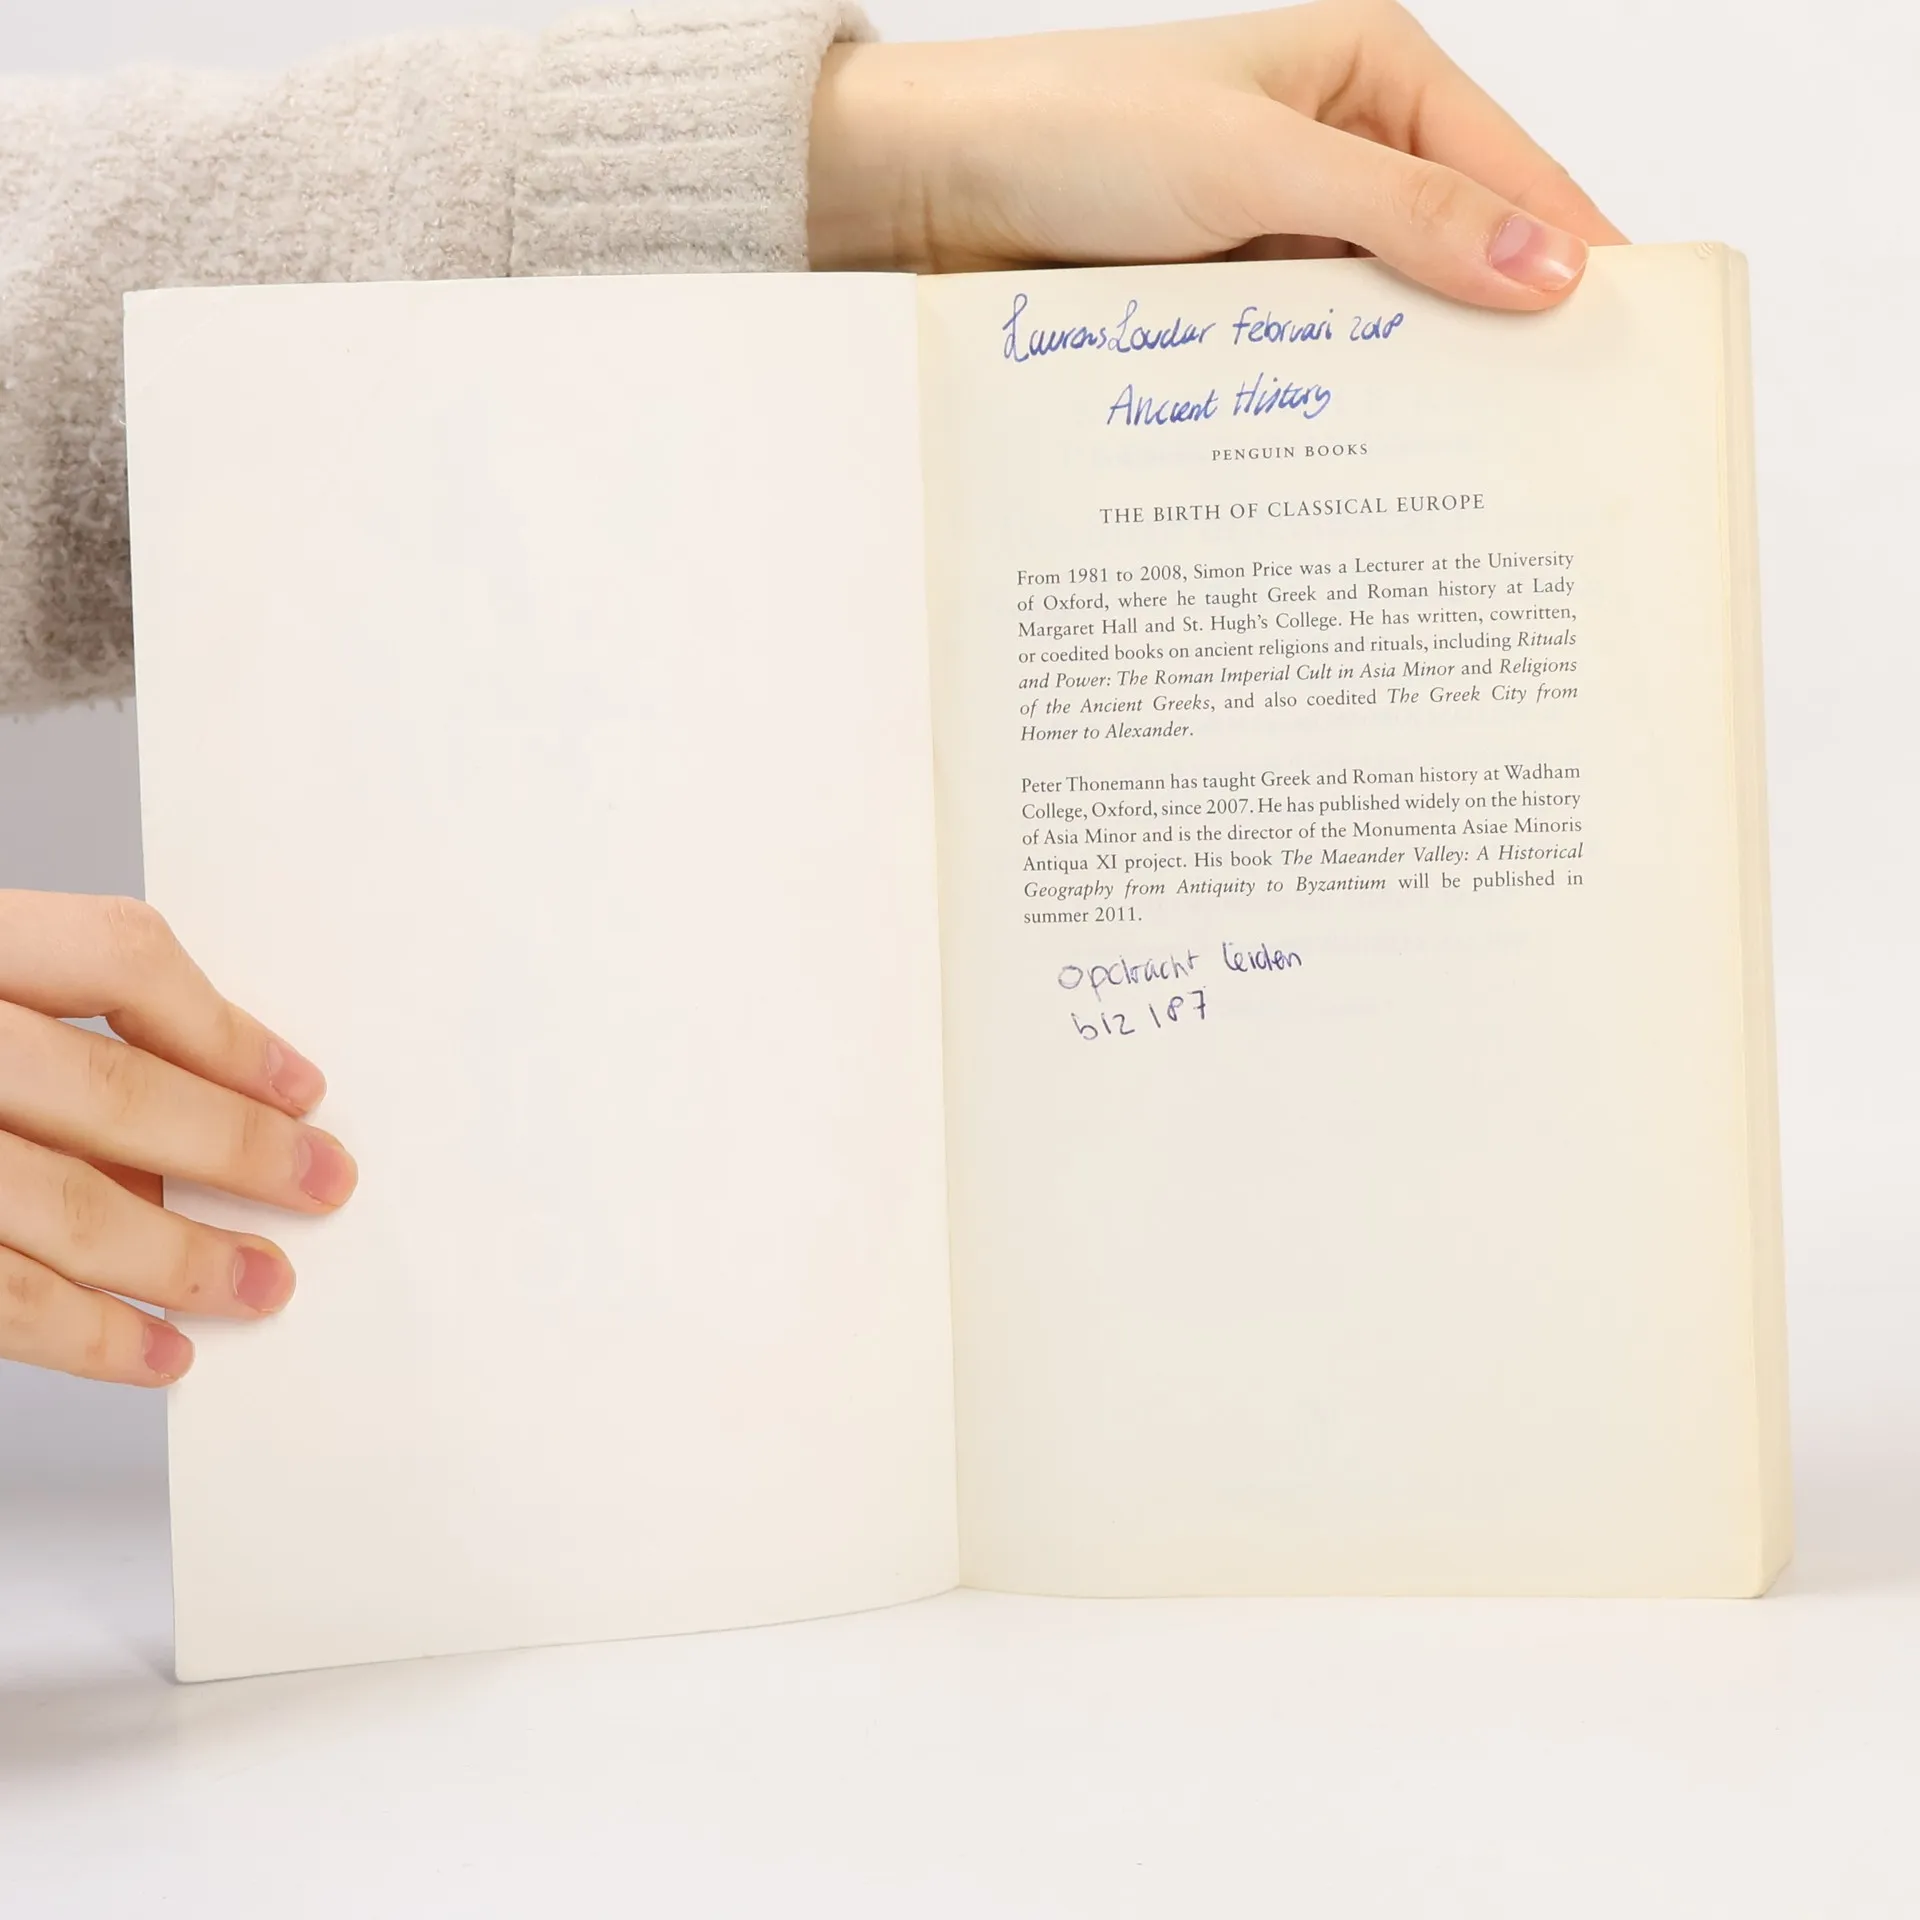 Laurens Loudar februari 2018
Ancient History
PENGUIN BOOKS
THE BIRTH OF CLASSICAL EUROPE
From 1981 to 2008, Simon Price was a Lecturer at the University
of Oxford, where he taught Greek and Roman history at Lady
Margaret Hall and St. Hugh's College. He has written, cowritten,
or coedited books on ancient religions and rituals, including Rituals
and Power: The Roman Imperial Cult in Asia Minor and Religions
of the Ancient Greeks, and also coedited The Greek City from
Homer to Alexander.
Peter Thonemann has taught Greek and Roman history at Wadham
College, Oxford, since 2007. He has published widely on the history
of Asia Minor and is the director of the Monumenta Asiae Minoris
Antiqua XI project. His book The Maeander Valley: A Historical
Geography from Antiquity to Byzantium will be published in
summer 2011.
opdracht leiden
blz 187